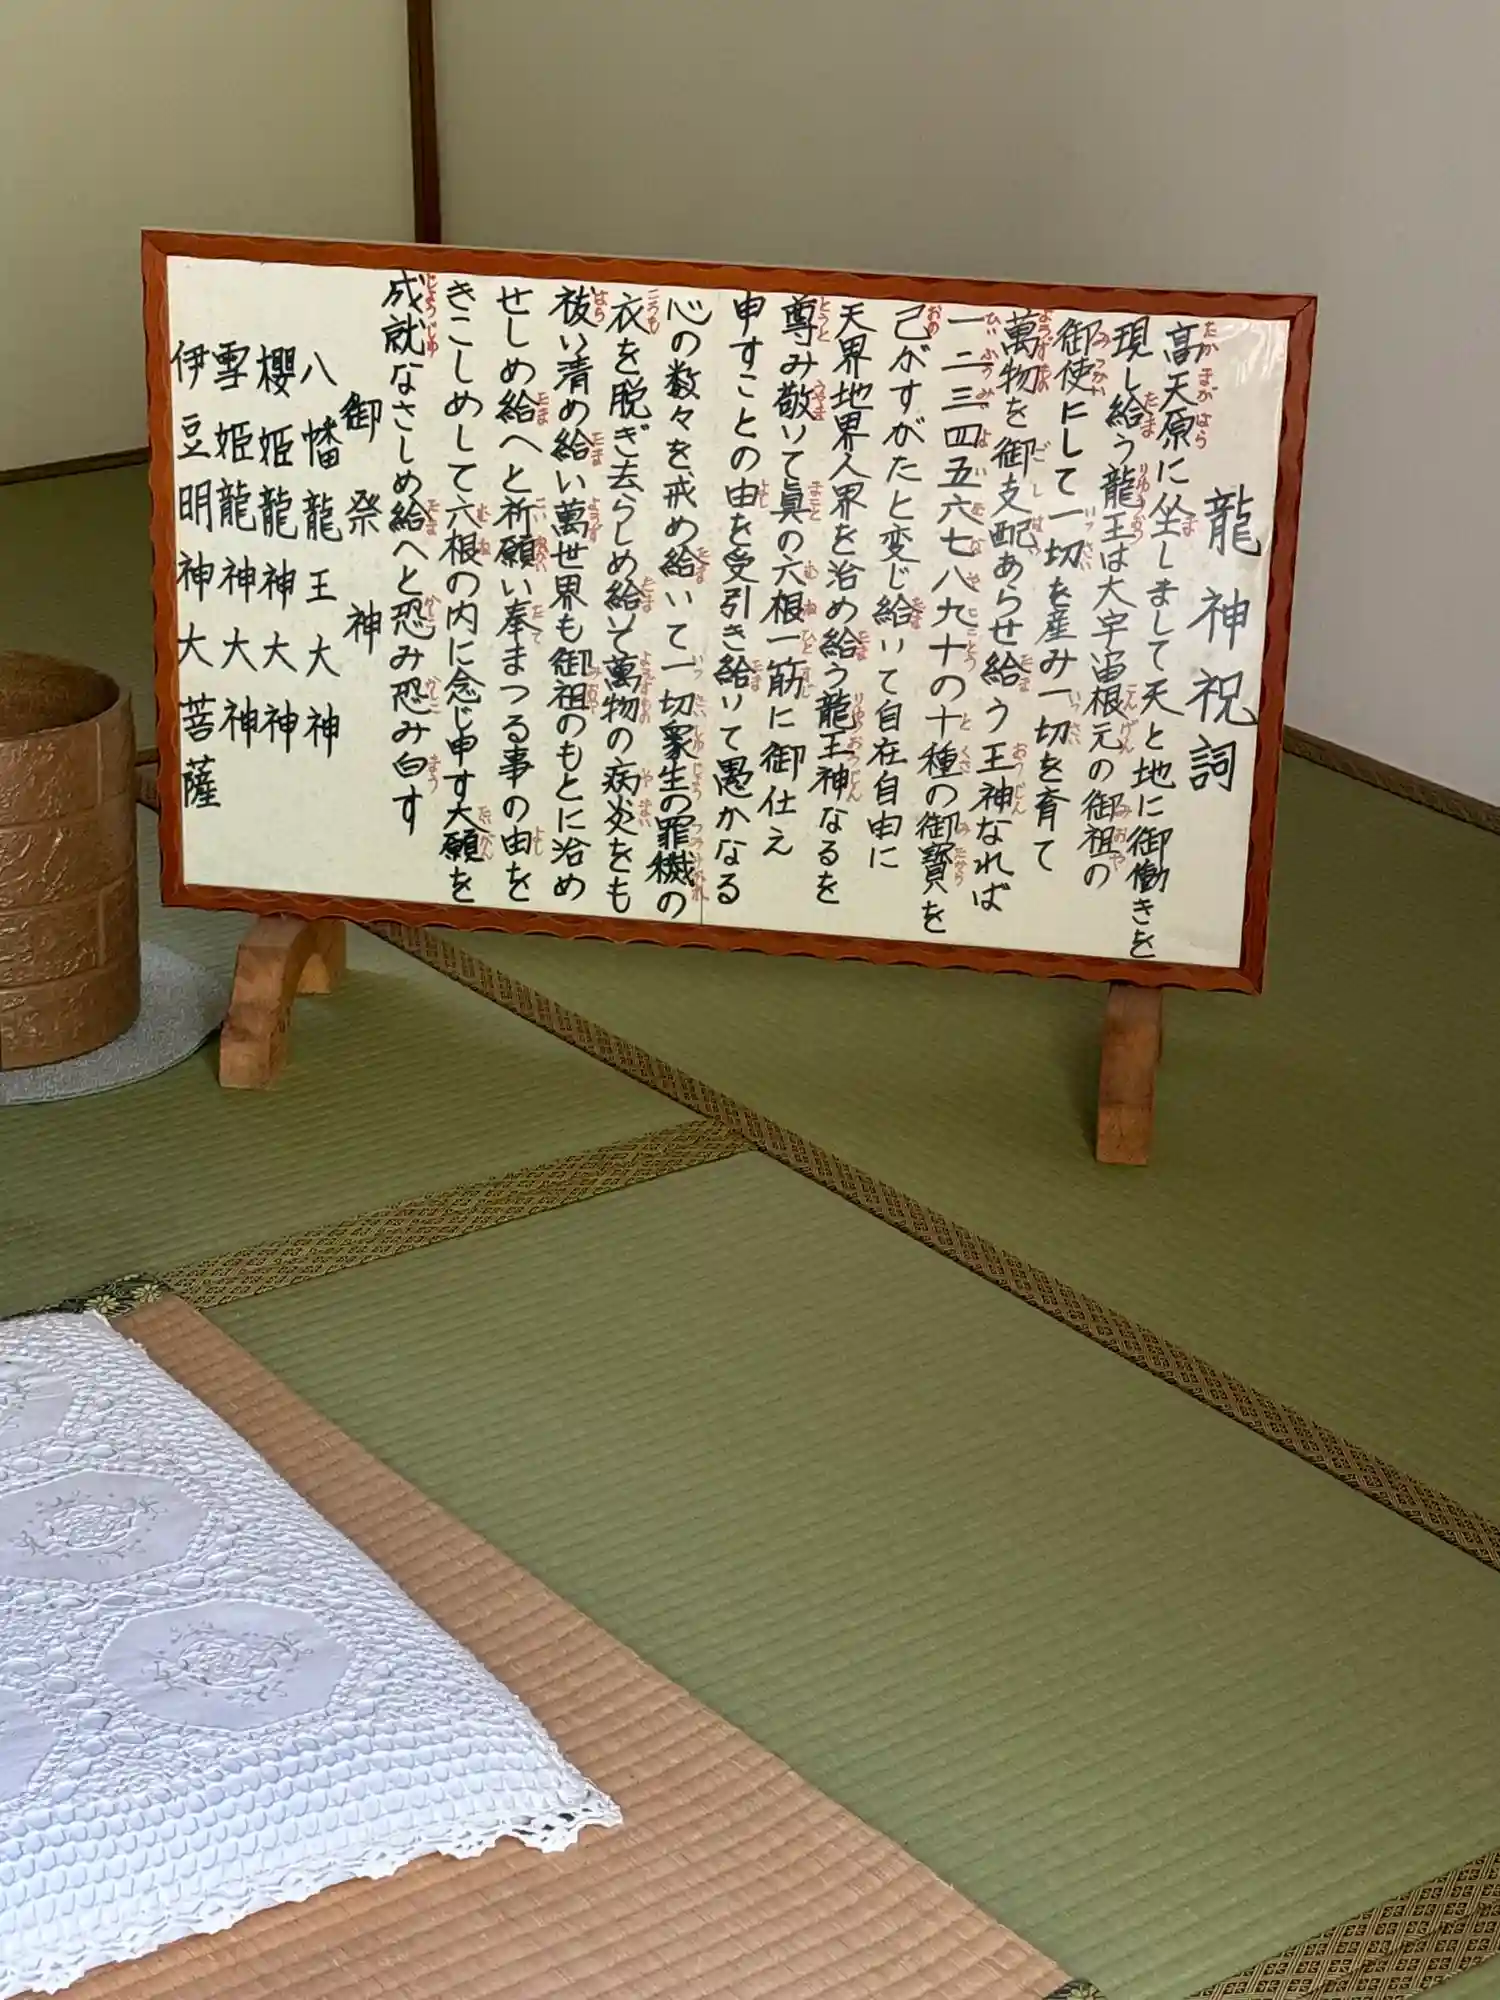 龍神祝詞
高天原に坐しまして天と地に御働きを
現し給う龍王は大宇宙根元の御祖の
御使にして一切を産み一切を育て
萬物を御支配あらせ給う王神なれば
一二三四五六七八九十の十種の御寳を
己がすがたと変じ給いて自在自由に
天界地界人界を治め給う龍王神なるを
尊み敬いて眞の六根一筋に御仕え
申すことの由を受引き給いて愚かなる
心の数々を戒め給いて一切衆生の罪穢の
衣を脱ぎ去らしめ給いて萬物の病災をも
祓い清め給い萬世界も御祖のもとに治め
せしめ給へと祈願い奉まつる事の由を
きこしめして六根の内に念じ申す大願を
成就なさしめ給へと恐み恐み白す
御祭神
八幡龍王大神
櫻姫龍神大神
雪姫龍神大神
伊豆明神大菩薩